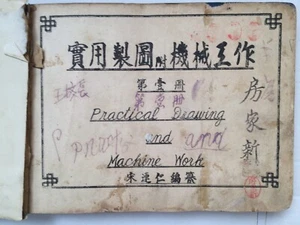 實用製圖附機械工作
第壹冊
第壹冊
Practical Drawing
and
and
Machine Work
房家新